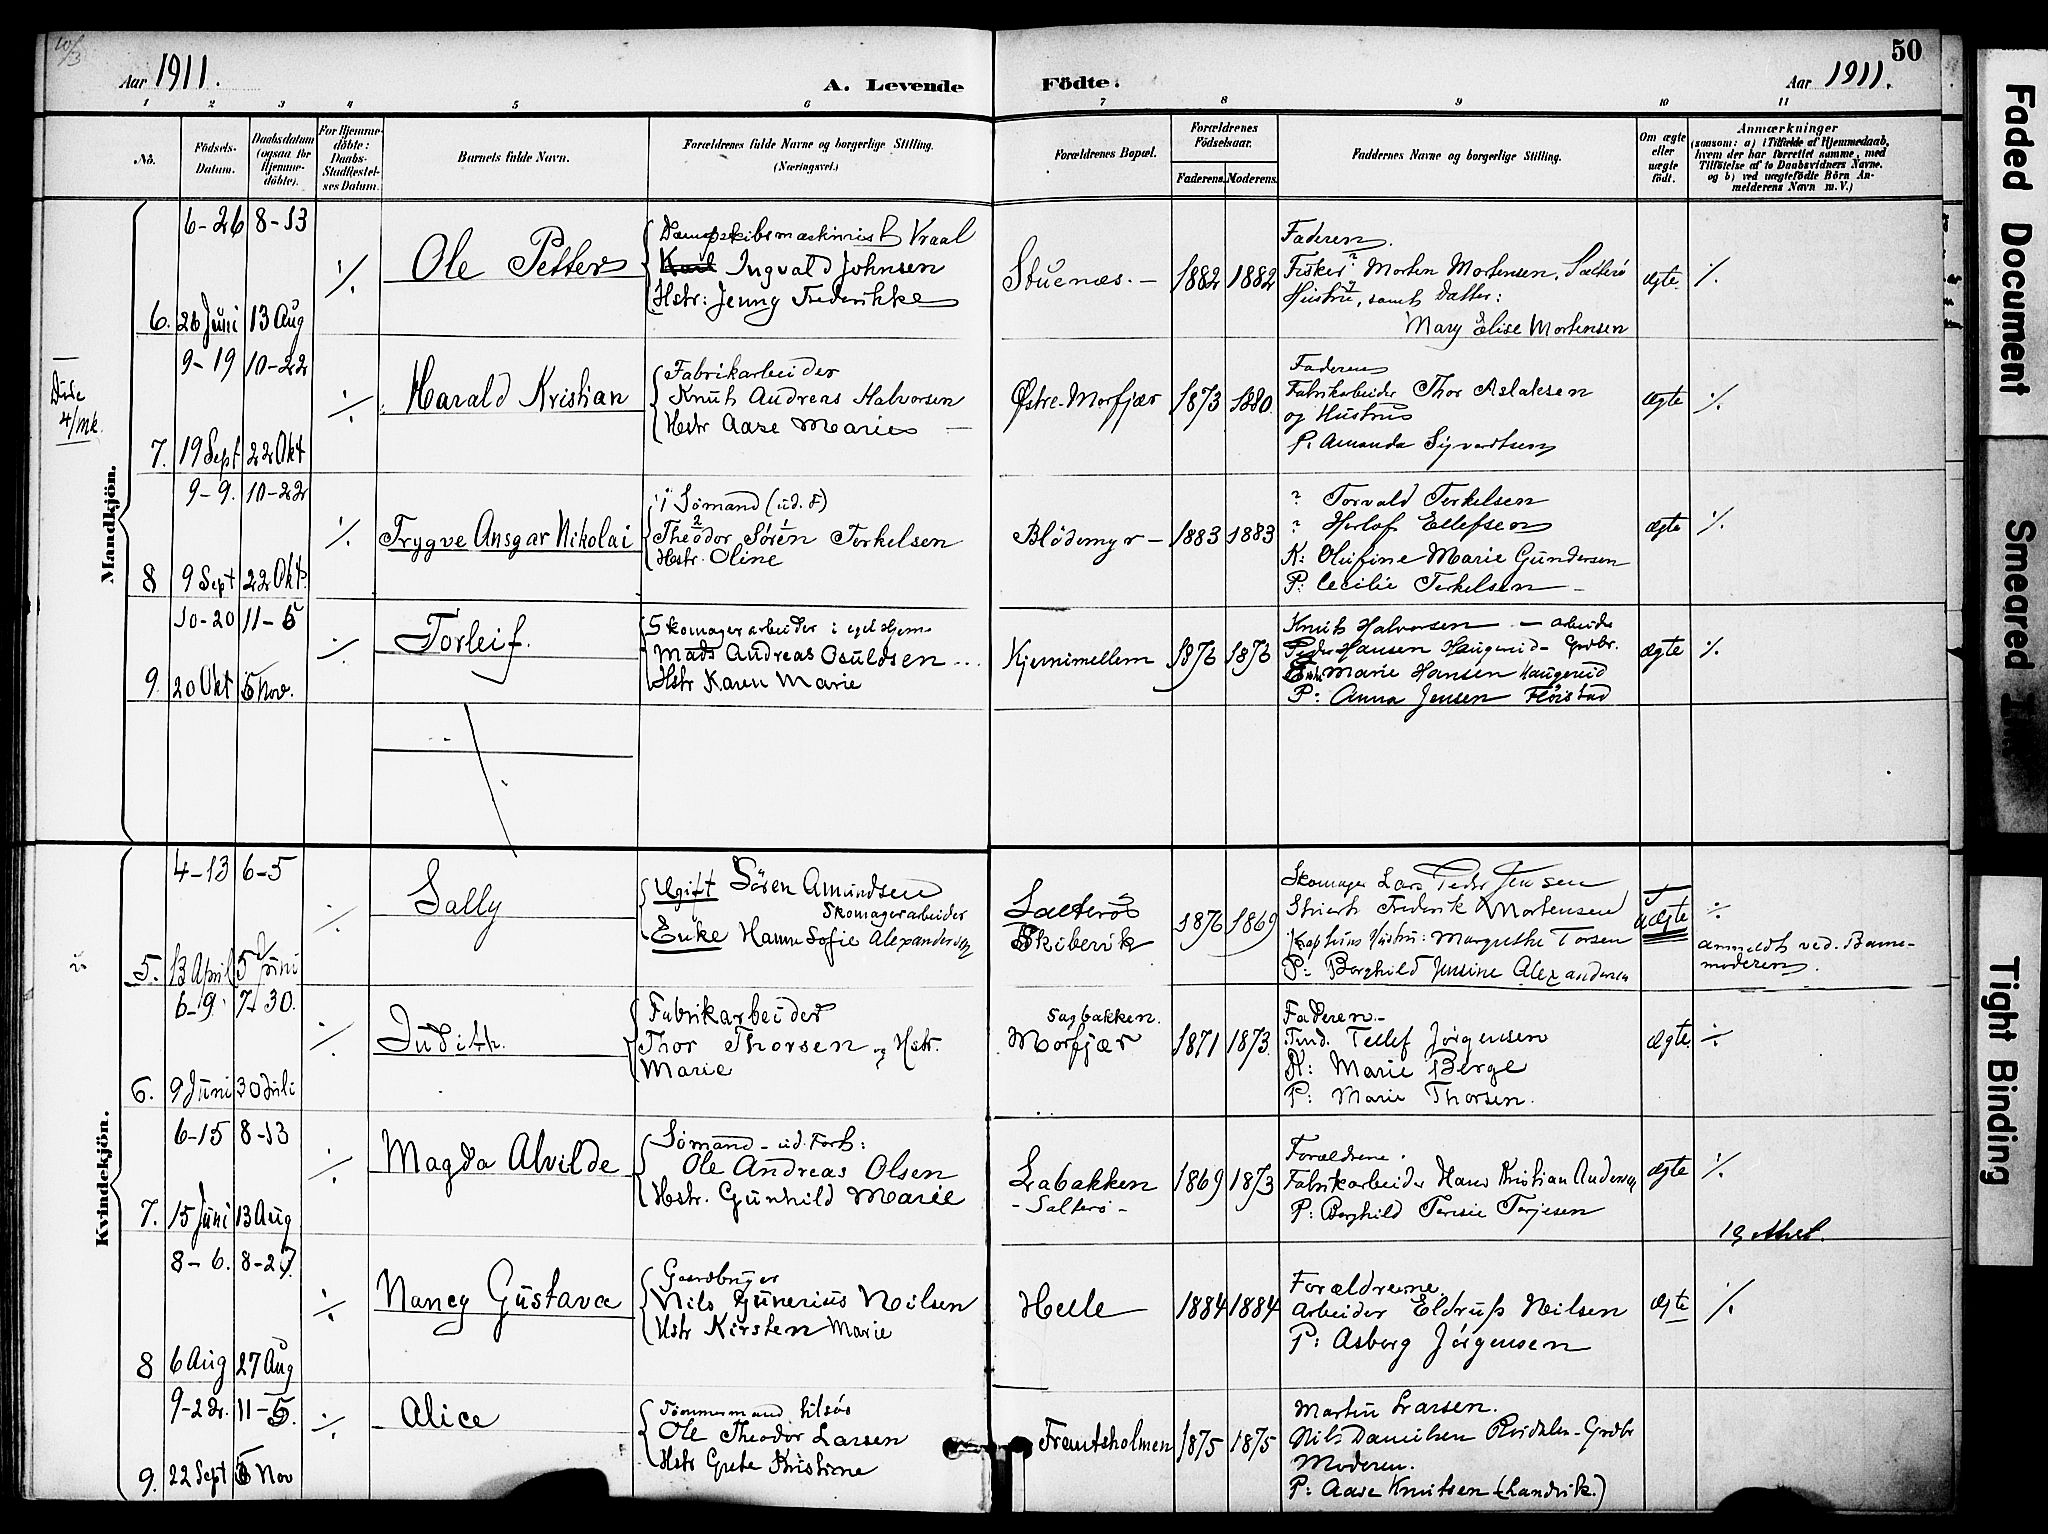 10/3
Aar 1911.
A. Levende Födte.
Aar 1911.
50
1 2 3 4 5 6 7 8 9 10 11
No.
Födsels-Datum.
Daabsdatum (ogsaa for Hjemme-döbte).
For Hjemme-döbte: Daabs-Stadfæstel-ses Datum.
Barnets fulde Navn.
Forældrenes fulde Navne og borgerlige Stilling. (Næringsvei.)
Forældrenes Bopæl.
Forældrenes Födselsaar.
Faderens. Moderens.
Faddernes Navne og borgerlige Stilling.
Om ægte eller uægte födt.
Anmærkninger
(saasom: a) i Tilfælde af Hjemmedaab,
hvem der har forrettet samme, med
Tilföielse af to Daabsvidners Navne.
og b) ved uægtefödte Börn An-
melderens Navn m. V.)
Mandkjön.
6-26 8-13
6. 26 Juni 13 Aug
%
Ole Petter
Dampskibsmaskinist Vraal
Karl Ingvald Johnsen
Hstr: Jenny Frederikke
Stuenæs.-
1882 1882
Faderen.
Fisker Morten Mortensen, Salterö
Hustru, samt Datter:
Mary Elise Mortensen
ægte %
4/mk.
9-19 10-22
7. 19 Sept 22 Okt
%
Harald Kristian
Fabrikarbeider
Knut Andreas Halvorsen
Hstr Aase Marie
Østre-Morfjær
1873 1880.
Faderen
Fabrikarbeider Thor Aslaksen
og Hustru
P. Amanda Sigvardtsen
ægte %
9-9. 10-22
8 9 Sept 22 Okt.
%
Trygve Ansgar Nikolai
Sømand (ud. F)
Theodor Søren Terkelsen
Hstr. Oline
Blödemyr-
1883 1883
? Torvald Terkelsen
? Herlof Ellefsen
K: Olufine Marie Gundersen
P: Cecilie Terkelsen -
ægte %
10-20 11-5
9. 20 Okt 5 Nov.
%
Torleif.
Skomagerarbeider i eget Hjem
Mads Andreas Osuldsen
Hstr Karen Marie
Kjernimellem
1876 1876
Knut Halvorsen - arbeider
Peder Hansen Haugerud - Grdbr.
Marie Hansen Haugerud
P: Anna Jensen Fløistad
ægte %
Kvindekjön.
4-13 6-5
5. 13 April 5 Juni
%
Sally
Ugift Sören Amundsen
Skomagerarbeider
Enke Hanne Sofie Alexandersen
Salterö
Skibervik
1876 1869
Skomager Lars Peder Jensen
Frederik Mortensen
Hustru: Margrethe Torsen
P: Borghild Jensine Alexandersen
uægte %
anmeldt ved. Barne-
moderen.
6-9. 7-30.
6. 9 Juni 30 Juli
%
Judith.
Fabrikarbeider
Thor Thorsen og Hstr.
Marie
Sagbakken.
Morfjær
1871 1873.
Faderen-
Tellef Jørgensen
K: Marie Berge
P: Marie Thorsen.
ægte. %
6-15 8-13
7. 15 Juni 13 Aug
%
Magda Alvilde
Sømand - ud. Forh:
Ole Andreas Olsen
Hstr. Gunhild Marie
Labakken
- Salterö -
1869 1873
Forældrene.
Fabrikarbeider Hans Kristian Andersen
P: Borghild Terjesen
ægte %
8-6. 8-27.
8 6 Aug 27 Aug
%
Nancy Gustava
Gaardbruger
Nils Gunerius Nilsen
Hstr Kirsten Marie
Helle
1884 1884
Forældrene.
Arbeider Eldrup Nilsen
P: Asborg Jörgensen
ægte %
9-22. 11-5.
9. 22 Sept 5 Nov
%
Alice
Tömmermand tilsös
Ole Theodor Larsen
Hstr Grete Kristine
Frentsholmen
1875 1875
Martin Larsen.
Nils Danielsen - Grdbr
Moderen.
P: Aase Knutsen (Landvik.)
Faded Document
Smeared Ink
Tight Binding